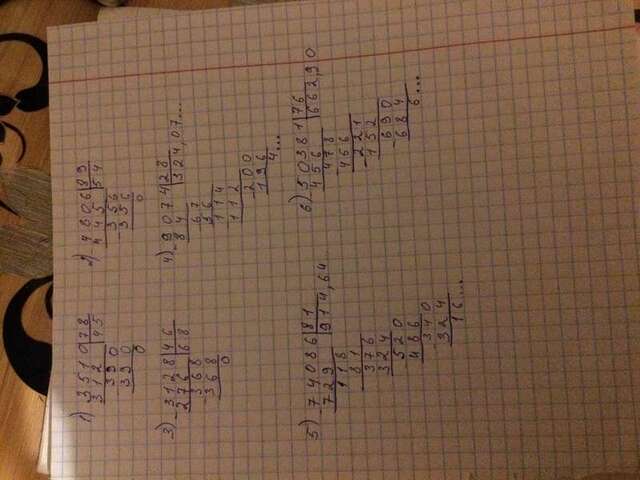 1) 3510 | 78
312 | 45
390
390
0
2) 4806 | 89
445 | 54
356
356
0
3) 3128 | 46
276 | 68
368
368
0
4) 9074 | 28
84 | 324,07...
67
56
114
112
200
196
4...
5) 74086 | 81
729 | 914,64
118
81
376
324
520
486
340
324
16...
6) 50381 | 76
456 | 662,90
478
456
221
152
690
684
6...